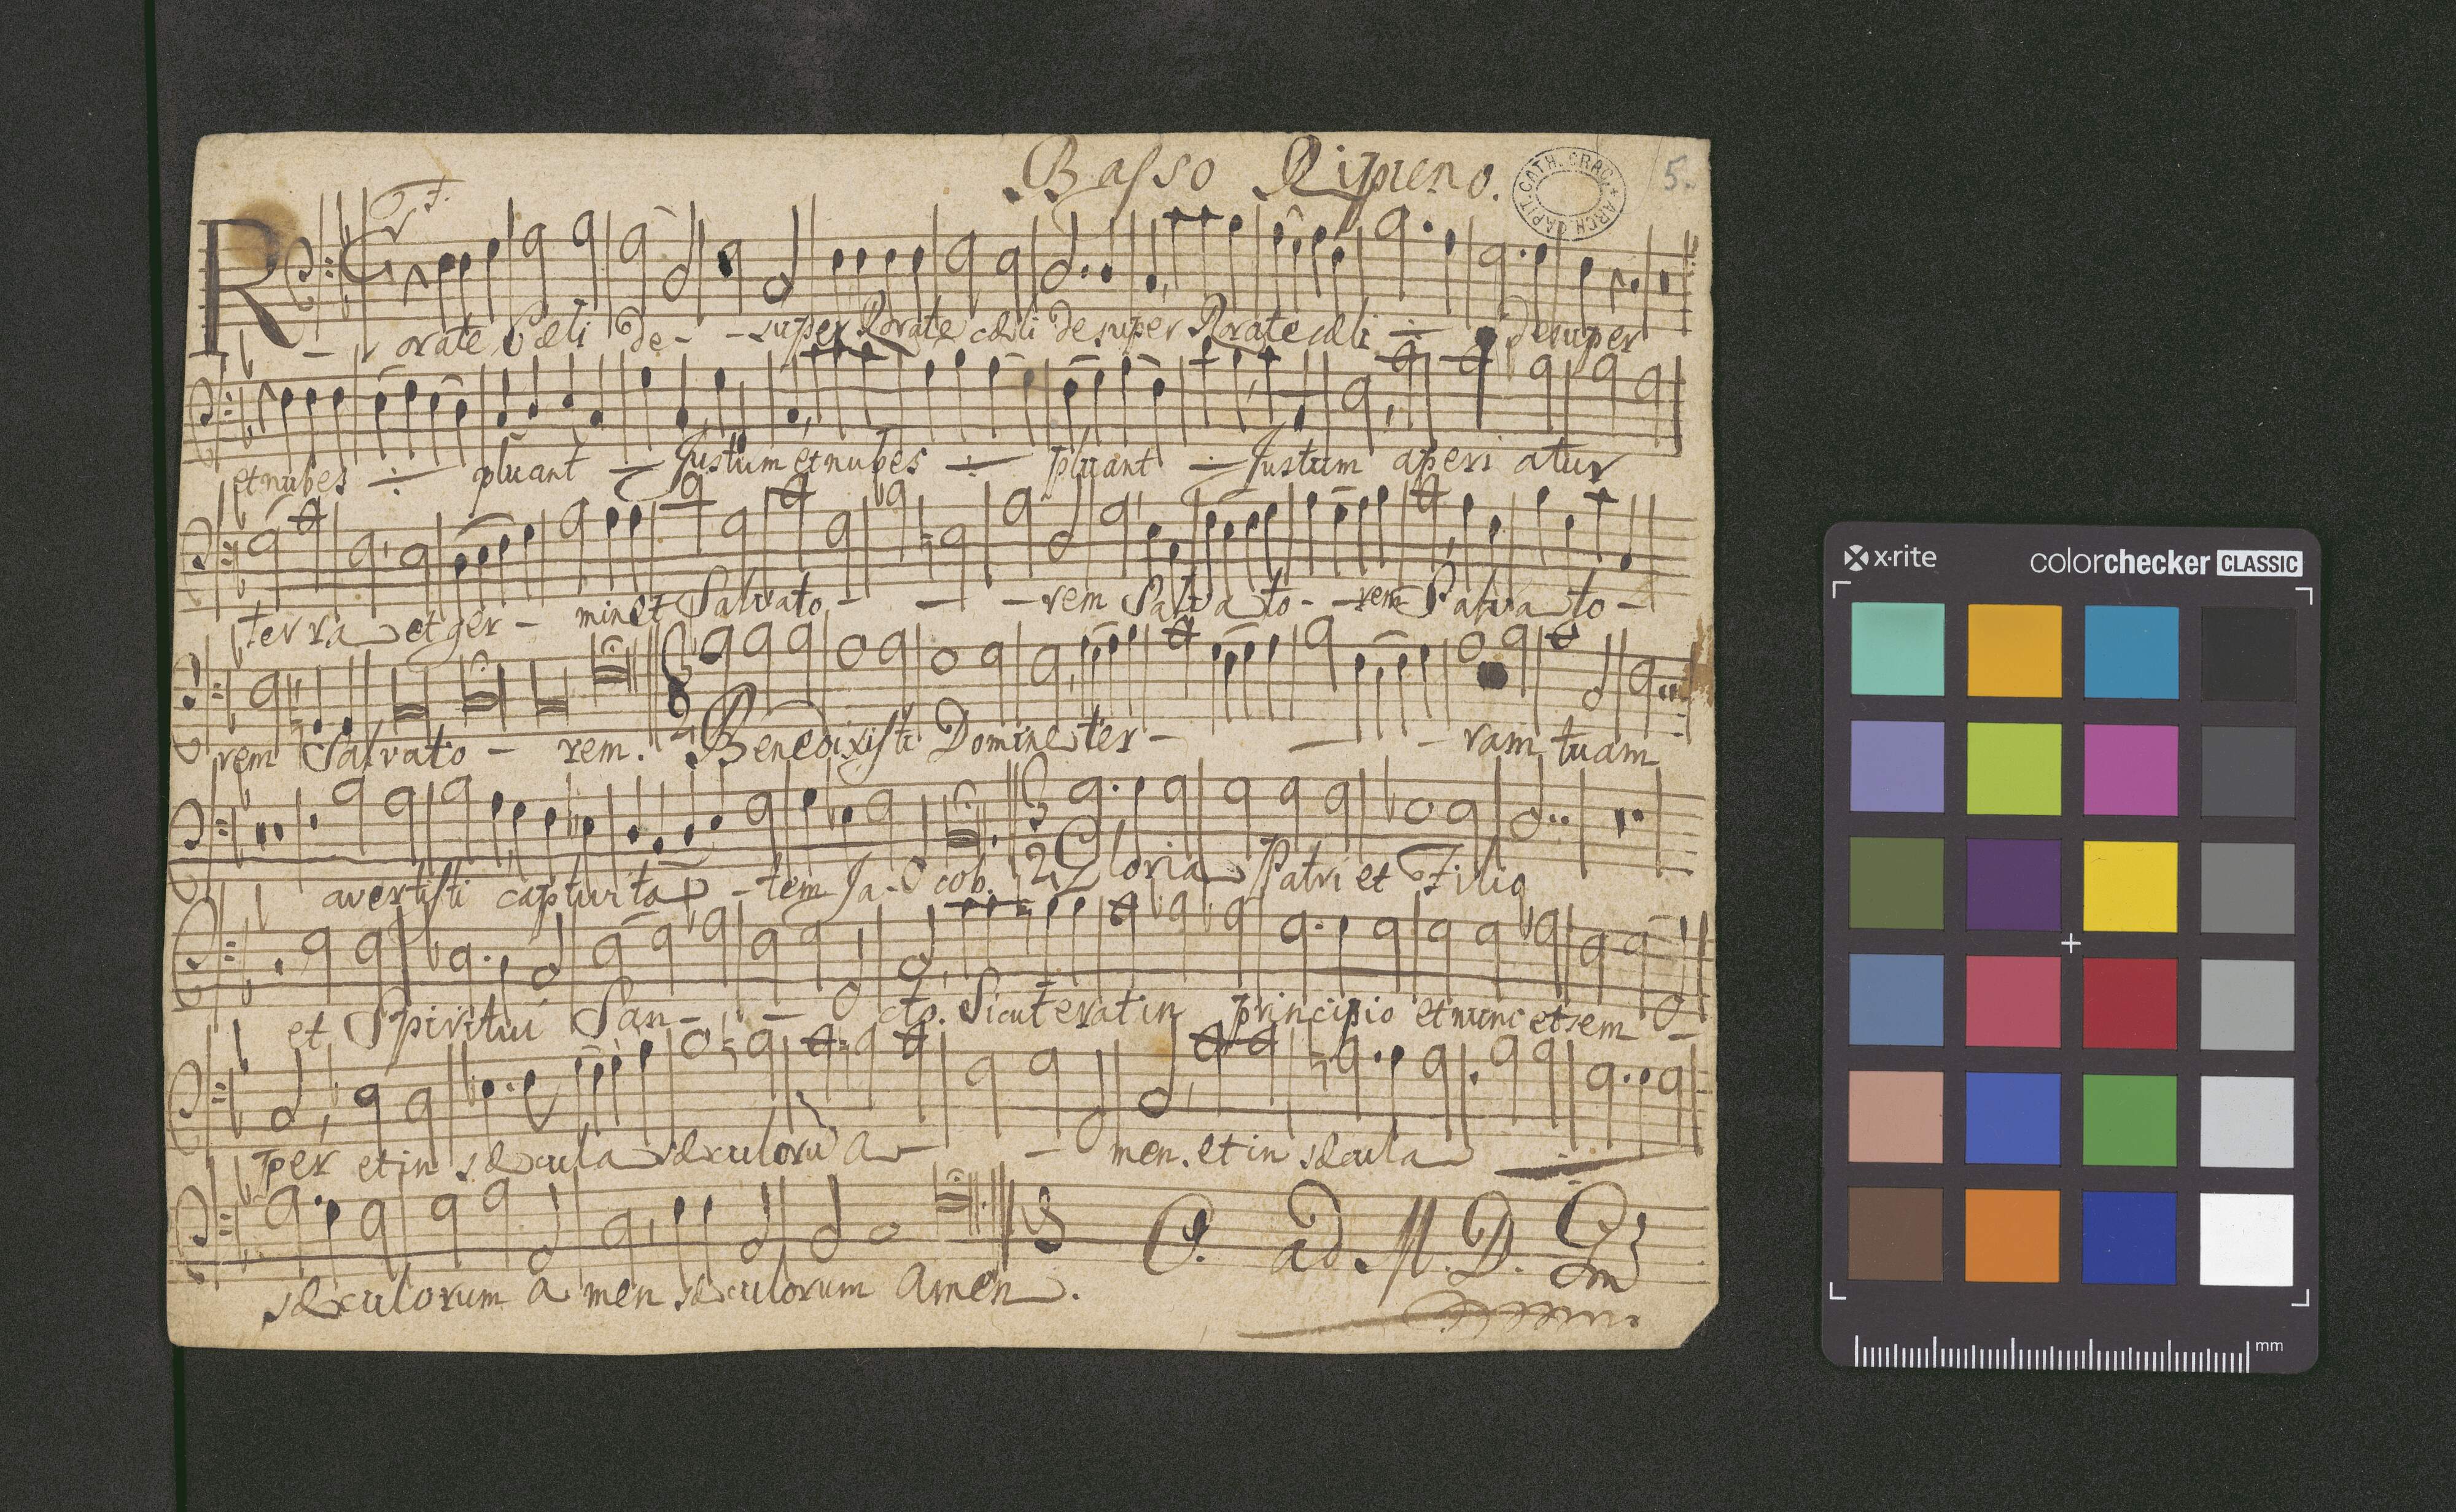 Basso Ripieno.
CATH. CRAC. ARCH. CAPIT.
5.
Rorate Cæli De- - super Rorate cæli desuper Rorate cæli ÷ desuper
et nubes ÷ pluant ÷ Justum et nubes ÷ pluant ÷ Justum aperi atur
terra et ger - minet Salvato - - - rem Salvato - - rem Salvato -
rem Salvato - rem. Benedixisti Domine ter - - - ram tuam
avertisti captivita - tem Ja - cob. Gloria Patri et Filio
et Spiritui San - - - cto. Sicut erat in principio et nunc et sem -
per et in sæcula sæculorũ a - - men. et in sæcula ÷
sæculorum a men sæculorum Amen.
ad M. D. G
x-rite
colorchecker CLASSIC
mm